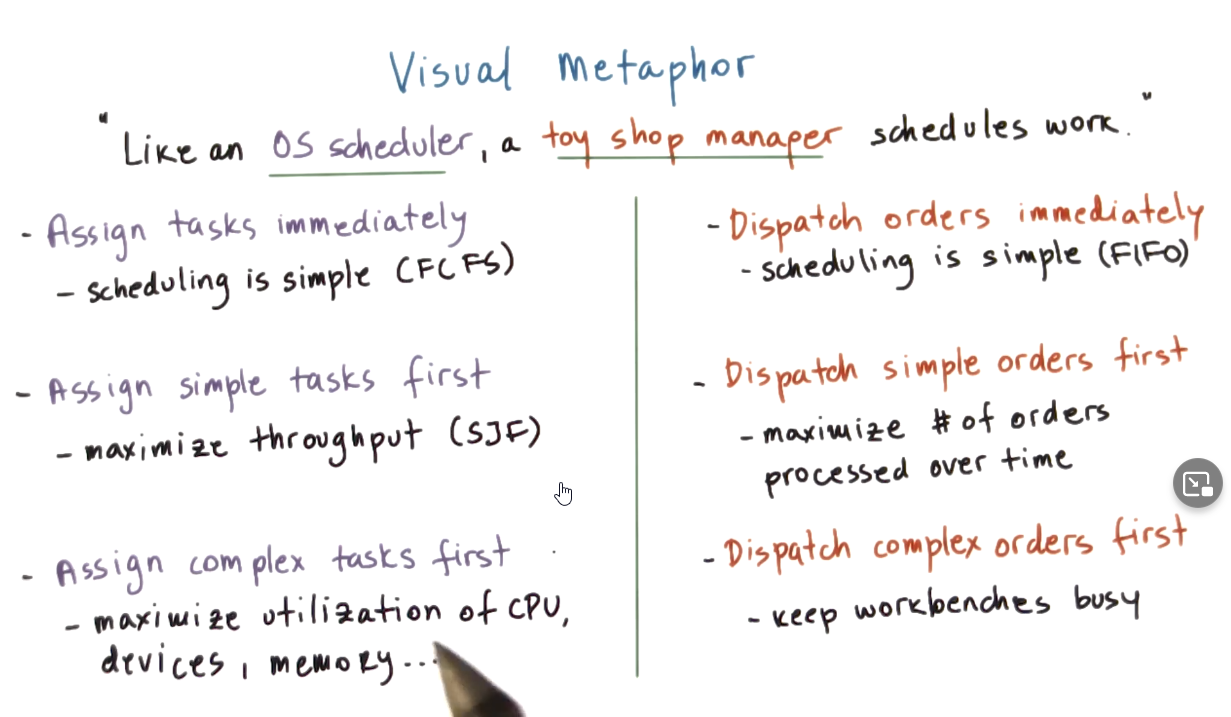 Visual Metaphor
"Like an OS scheduler, a toy shop manager schedules work."
- Assign tasks immediately
- scheduling is simple (FCFS)
- Assign simple tasks first
- maximize throughput (SJF)
- Assign complex tasks first
- maximize utilization of CPU,
devices, memory...
- Dispatch orders immediately
- scheduling is simple (FIFO)
- Dispatch simple orders first
- maximize # of orders
processed over time
- Dispatch complex orders first
- keep workbenches busy